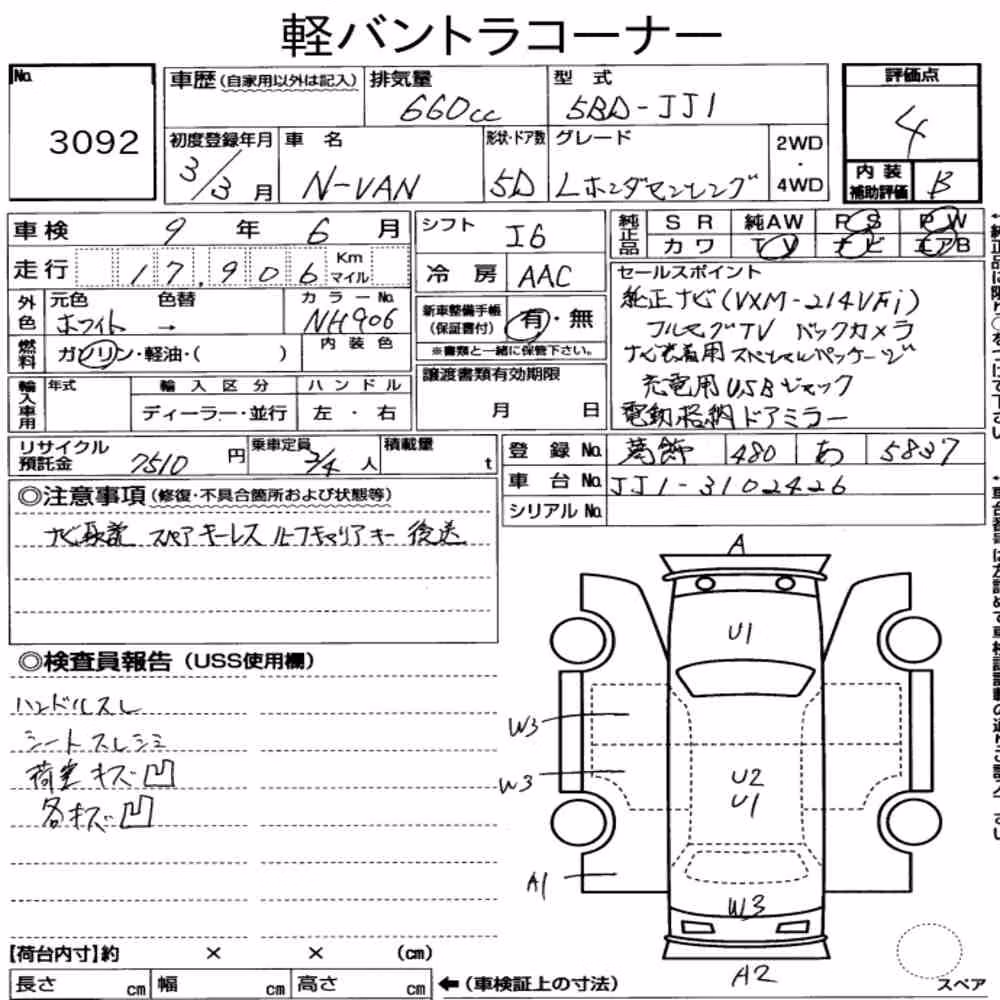 軽バントラコーナー
No.
3092
車歴(自家用以外は記入)
排気量
660cc
型 式
5BD-JJ1
評価点
4
初度登録年月
3/3月
車 名
N-VAN
形状・ドア数
5D
グレード
Lホンダセンシング
2WD
・
4WD
内 装
補助評価
B
車検 9 年 6 月
走行 17,906 Km
マイル
外色
元色
ホワイト
色替
→
カラーNo.
NH906
燃料
ガソリン・軽油・( )
内 装 色
輸入車用
年式
輸 入 区 分
ディーラー・並行
ハ ン ド ル
左 ・ 右
シフト I6
冷 房 AAC
新車整備手帳
(保証書付)
有・無
※書類と一緒に保管下さい。
譲渡書類有効期限
月 日
純正品
S R 純AW P S P W
カ ワ T V ナ ビ エアB
セールスポイント
純正ナビ(VXM-214VFi)
フルセグTV バックカメラ
ナビ装着用スペシャルパッケージ
充電用USBジャック
電動格納ドアミラー
リサイクル
預託金
7510 円
乗車定員
2/4 人
積載量
t
登 録 No. 葛飾 480 あ 5837
車 台 No. JJ1-3102426
シリアル No.
◎注意事項(修復・不具合箇所および状態等)
ナビ取説 スペアキーレス ルーフキャリアキー 後送
◎検査員報告(USS使用欄)
ハンドルスレ
シートスレシミ
荷室キズ凹
各キズ凹
A
U1
W3
W3
U2
U1
A1
W3
A2
スペア
【荷台内寸】約 × × (cm)
長さ cm 幅 cm 高さ cm
←(車検証上の寸法)